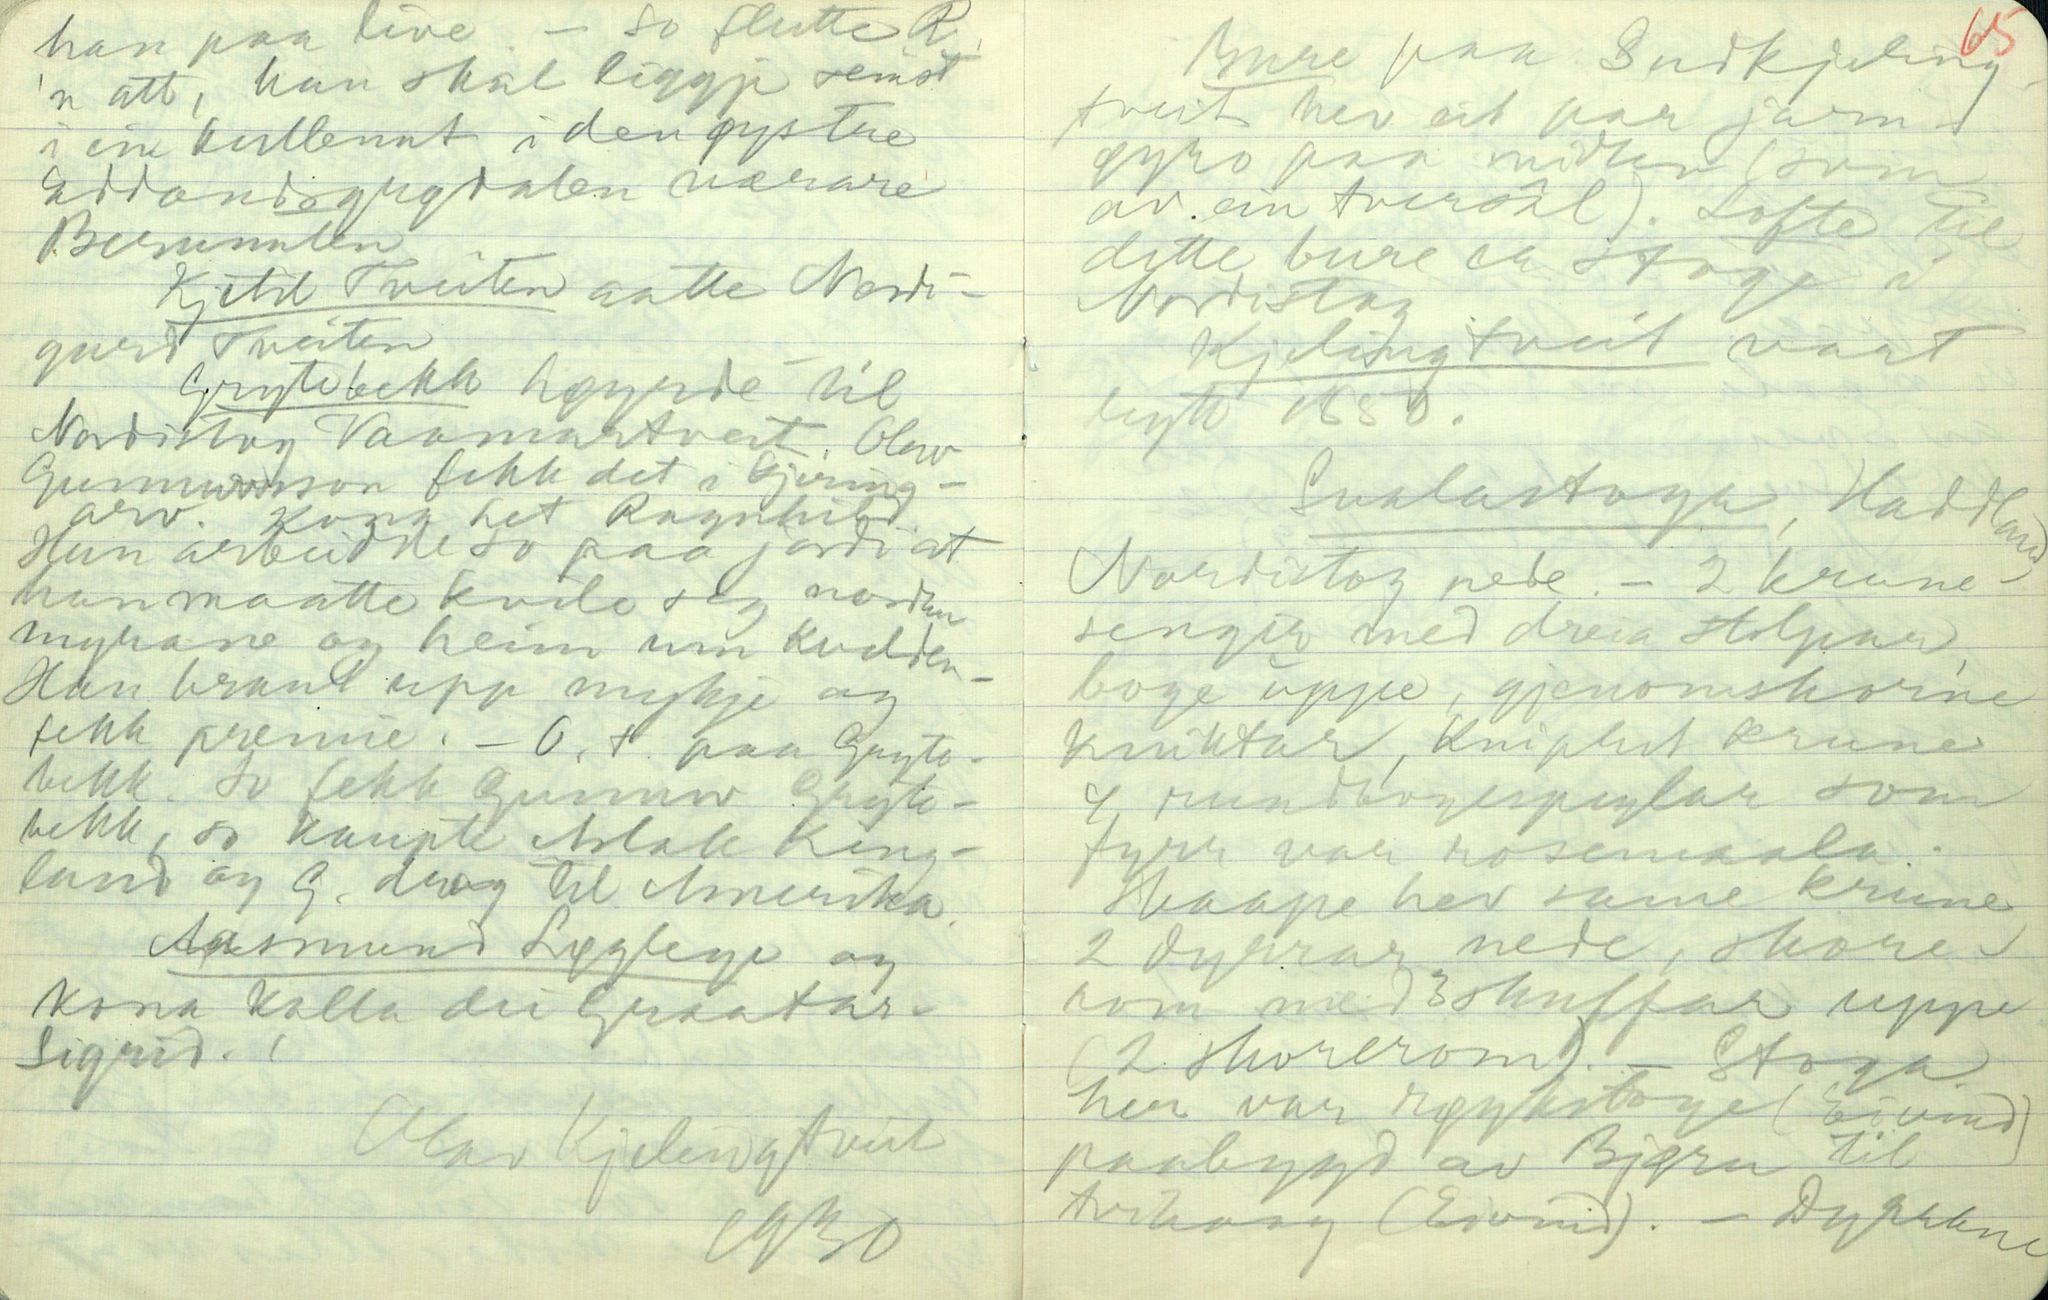 han paa live. — So slutte R.
'n att, han skal liggje seinst
i ein kullemt i den øystre
Haddlandsgrøgdalen nærare
Berunuten
Kjetil Tveiten aatte Nordi-
gard Tveiten
Grytebekk høyrde til
Nordistog Vaamartveit. Olav
Gunnarson fekk det i kjering-
arv. Kona het Ragnhild.
Han arbeidde so paa jordi at
han maatte kvile seg nordan
myrane og heim um kvelden —
Han braut upp mykje og
fekk premie. — O. t. paa Gryte-
bekk. So fekk Gunnar Gryte-
bekk, so kaupte Aslak King-
land og G. drog til Amerika.
Aasmund Løglege og
kona kalla dei Graatar-
Sigrid.
Olav Kjelingtveit
1930
65
Bure paa Sudkjeling-
tveit hev eit par jarnd
øyro paa midten (som
av ein tveraal). Lofte til
dette bure er stoge i
Nordistog
Kjelingtveit vaart
bytt 1850.
Svalastoga, Haddland
Nordistog nede. — 2 krune-
sengjir med dreia stolpar,
boge uppe, gjenomskorne
kniktar, kniplut krune
4 rundbogespeglar som
fyrr var rosemaala.
Skaape hev same krune
2 dyrrar nede, skore-
rom med 3 skuffar uppe
(2 skorerom). — Stoga
her var røykstoge (Eivind)
paabygd av Bjørn til
tvihøng (Eivind). — Dyrrane